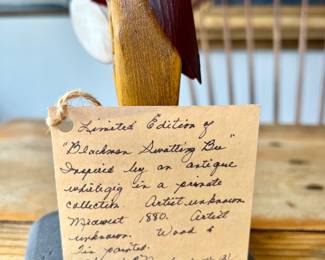 Limited Edition of
"Blackman Swatting Bee"
Inspired by an antique
whirligig in a private
collection Artist unknown
Midwest 1880. Artist
unknown. Wood &
tin painted.